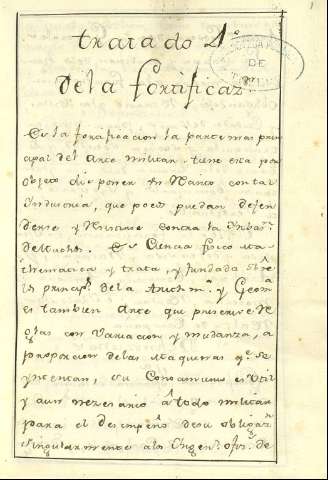 tratado 1º
de la fortificaz.n
DE
Es la fortificacion la parte mas prin
cipal del Arte militar. tiene esta por
objeto disponer un Recinto con tal
Industria, que pocos puedan defen
derse y contra la
de muchos. Es Ciencia fisico ma
thematica y trata, y fundada sbre
ls princip.s de la Arithm.ca y Geom.a
es tambien Arte que prescrive Re
glas con Variacion y mudanza, a
proporcion de las Maquinas q.e se
ynventan, su Conocimiento es Util
y aun nezesario â todo militar
para el desempeño de su obligaz.n
singularmente a los Ingen.s ofiz.s de